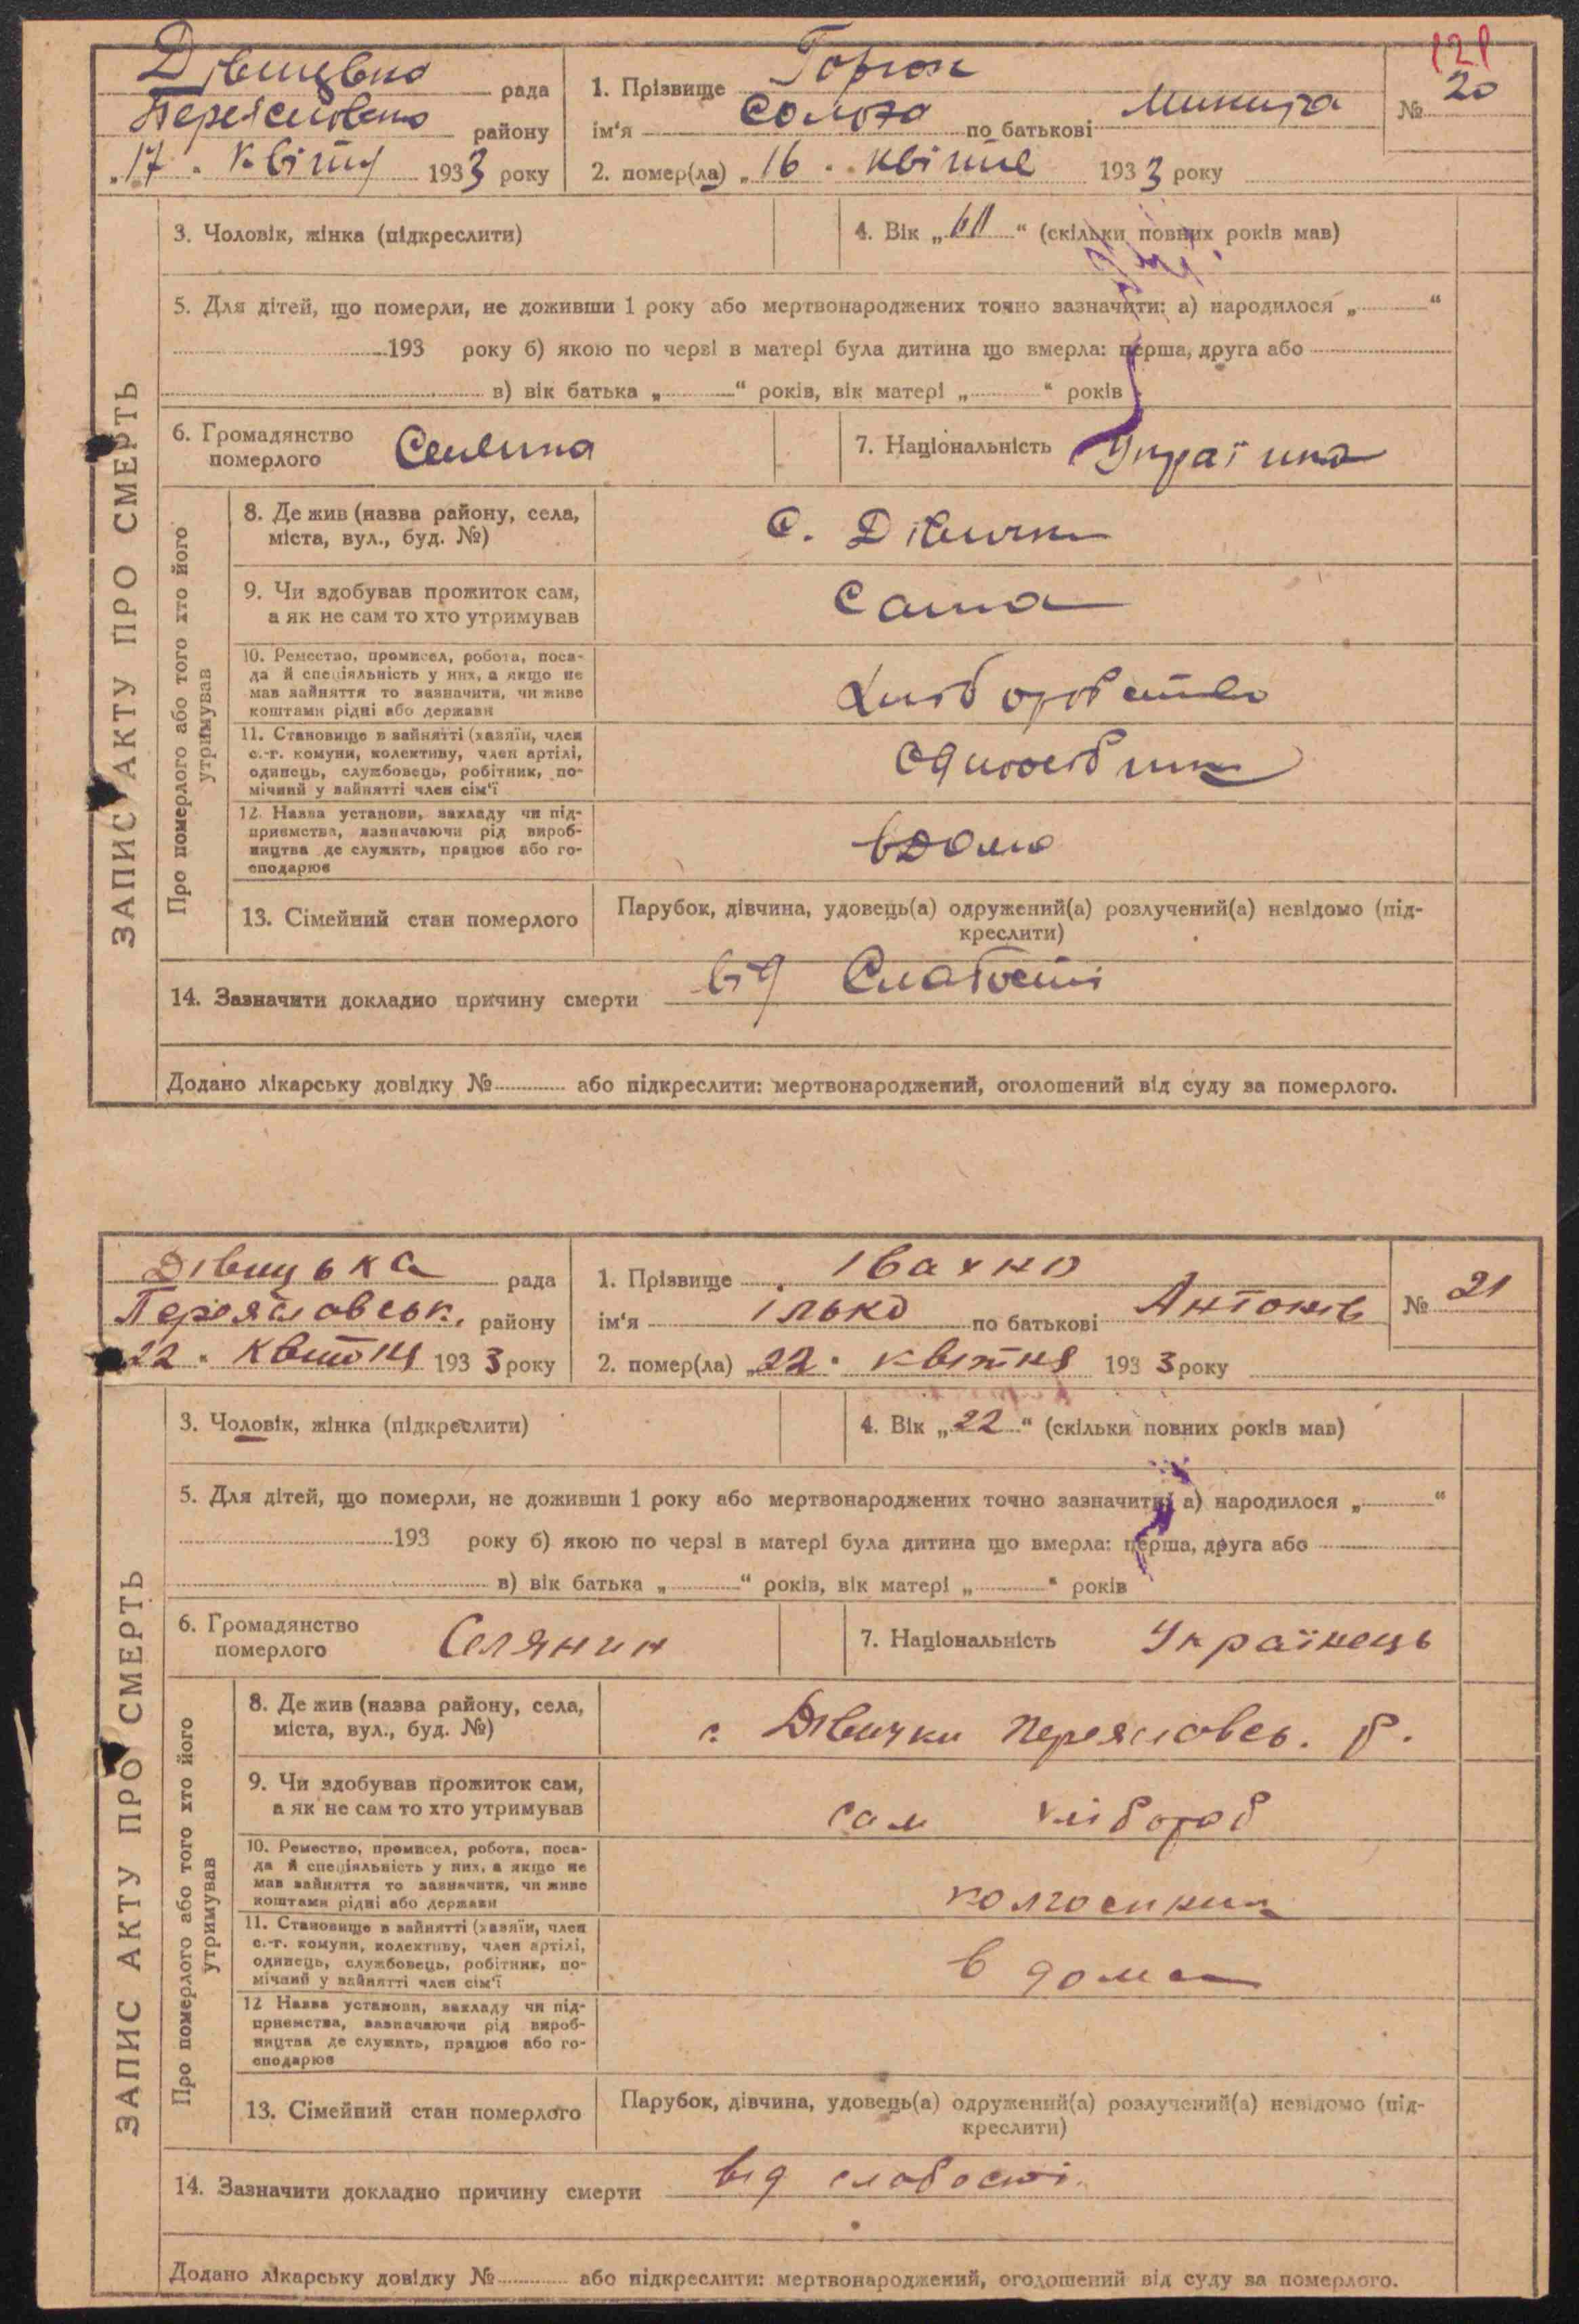 121
Дівицька рада
Переяславсько району
„17 . Квітня 1933 року
1. Прізвище Горюк
ім‘я по батькові Микита
№ 20
2. помер(ла) „16 . квітня 1933 року
ЗАПИС АКТУ ПРО СМЕРТЬ
3. Чоловік, жінка (підкреслити)
4. Вік „60“ (скільки повних років мав)
5. Для дітей, що померли, не доживши 1 року або мертвонароджених точно зазначити: а) народилося „ “
193 року б) якою по черзі в матері була дитина що вмерла: перша, друга або
в) вік батька „ “ років, вік матері „ “ років
6. Громадянство
померлого Селянка
7. Національність Українка
Про померлого або того хто його
утримував
8. Де жив (назва району, села,
міста, вул., буд. №)
с. Дівички
9. Чи здобував прожиток сам,
а як не сам то хто утримував
Сама
10. Ремество, промисел, робота, поса-
да й спеціяльність у них, а якщо не
мав зайняття то зазначити, чи живе
коштами рідні або держави
Хліборобство
11. Становище в зайнятті (хазяїн, член
с.-г. комуни, колективу, член артілі,
одинець, службовець, робітник, по-
мічний у зайнятті член сім‘ї
Одноосібник
12. Назва установи, закладу чи під-
приємства, зазначаючи рід вироб-
ництва де служить, працює або го-
сподарює
вдома
13. Сімейний стан померлого
Парубок, дівчина, удовець(а) одружений(а) розлучений(а) невідомо (під-
креслити)
14. Зазначити докладно причину смерти від Слабости
Додано лікарську довідку № або підкреслити: мертвонароджений, оголошений від суду за померлого.
Дівицька рада
Переяславськ. району
22 . Квітня 1933 року
1. Прізвище Івахно
ім‘я Ілько по батькові Антонів
№ 21
2. помер(ла) „22 . квітня 1933 року
ЗАПИС АКТУ ПРО СМЕРТЬ
3. Чоловік, жінка (підкреслити)
4. Вік „22“ (скільки повних років мав)
5. Для дітей, що померли, не доживши 1 року або мертвонароджених точно зазначити: а) народилося „ “
193 року б) якою по черзі в матері була дитина що вмерла: перша, друга або
в) вік батька „ “ років, вік матері „ “ років
6. Громадянство
померлого Селянин
7. Національність Українець
Про померлого або того хто його
утримував
8. Де жив (назва району, села,
міста, вул., буд. №)
с. Дівички Переяславсь. р.
9. Чи здобував прожиток сам,
а як не сам то хто утримував
сам хлібороб
10. Ремество, промисел, робота, поса-
да й спеціяльність у них, а якщо не
мав зайняття то зазначити, чи живе
коштами рідні або держави
колгоспник
11. Становище в зайнятті (хазяїн, член
с.-г. комуни, колективу, член артілі,
одинець, службовець, робітник, по-
мічний у зайнятті член сім‘ї
в дома
12 Назва установи, закладу чи під-
приємства, зазначаючи рід вироб-
ництва де служить, працює або го-
сподарює
13. Сімейний стан померлого
Парубок, дівчина, удовець(а) одружений(а) розлучений(а) невідомо (під-
креслити)
14. Зазначити докладно причину смерти від слабости.
Додано лікарську довідку № або підкреслити: мертвонароджений, оголошений від суду за померлого.